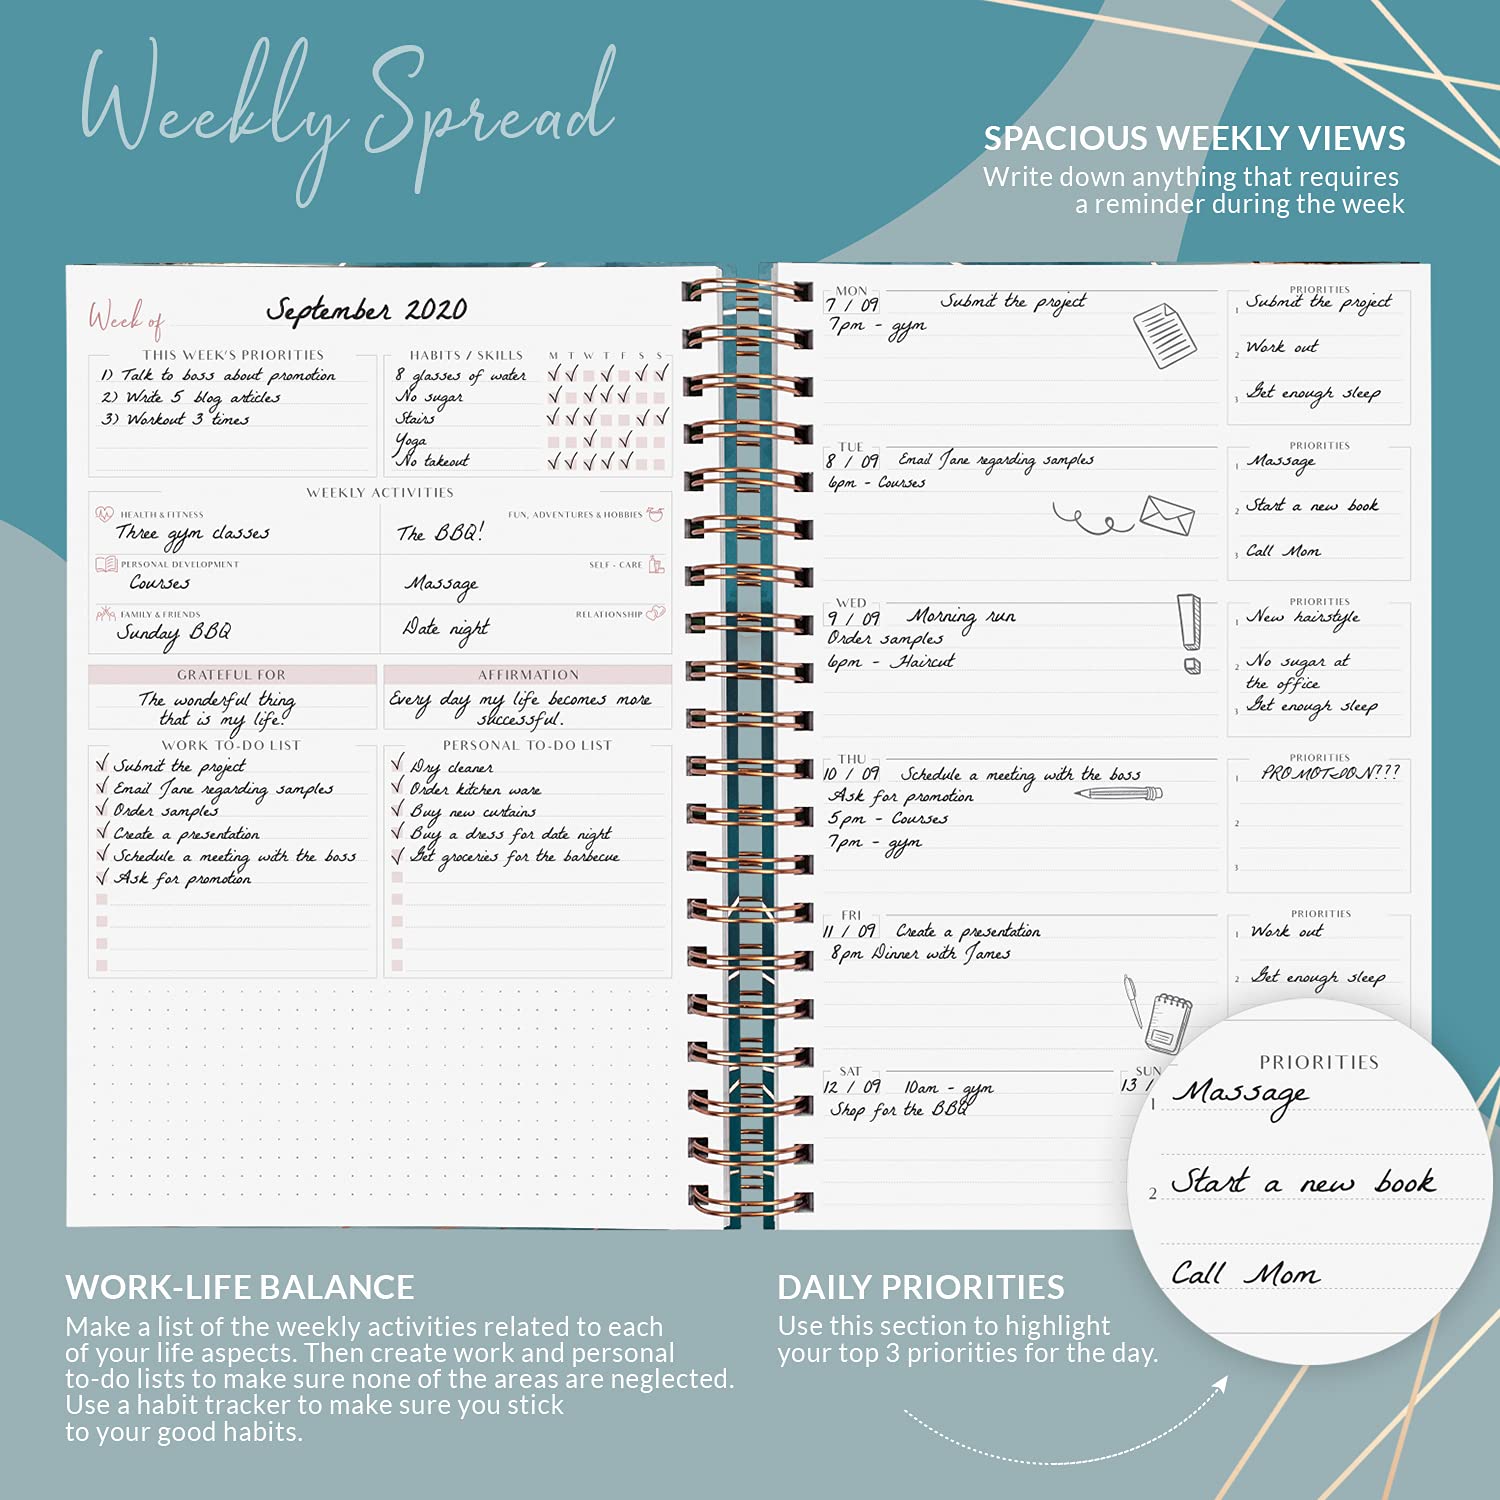 Weekly Spread
SPACIOUS WEEKLY VIEWS
Write down anything that requires
a reminder during the week
Week of
September 2020
THIS WEEK'S PRIORITIES
1) Talk to boss about promotion
2) Write 5 blog articles
3) Workout 3 times
HABITS / SKILLS M T W T F S S
8 glasses of water
No sugar
Stairs
Yoga
No takeout
WEEKLY ACTIVITIES
HEALTH & FITNESS
Three gym classes
FUN, ADVENTURES & HOBBIES
The BBQ!
PERSONAL DEVELOPMENT
Courses
SELF - CARE
Massage
FAMILY & FRIENDS
Sunday BBQ
RELATIONSHIP
Date night
GRATEFUL FOR
The wonderful thing
that is my life!
AFFIRMATION
Every day my life becomes more
successful.
WORK TO-DO LIST
Submit the project
Email Jane regarding samples
Order samples
Create a presentation
Schedule a meeting with the boss
Ask for promotion
PERSONAL TO-DO LIST
Dry cleaner
Order kitchen ware
Buy new curtains
Buy a dress for date night
Get groceries for the barbecue
MON
7 / 09 Submit the project
7pm - gym
PRIORITIES
1 Submit the project
2 Work out
3 Get enough sleep
TUE
8 / 09 Email Jane regarding samples
6pm - Courses
PRIORITIES
1 Massage
2 Start a new book
3 Call Mom
WED
9 / 09 Morning run
Order samples
6pm - Haircut
PRIORITIES
1 New hairstyle
2 No sugar at
the office
3 Get enough sleep
THU
10 / 09 Schedule a meeting with the boss
Ask for promotion
5pm - Courses
7pm - gym
PRIORITIES
1 PROMOTION???
2
3
FRI
11 / 09 Create a presentation
8pm Dinner with James
PRIORITIES
1 Work out
2 Get enough sleep
SAT
12 / 09 10am - gym
Shop for the BBQ
SUN
13 /
PRIORITIES
1 Massage
2 Start a new book
Call Mom
WORK-LIFE BALANCE
Make a list of the weekly activities related to each
of your life aspects. Then create work and personal
to-do lists to make sure none of the areas are neglected.
Use a habit tracker to make sure you stick
to your good habits.
DAILY PRIORITIES
Use this section to highlight
your top 3 priorities for the day.